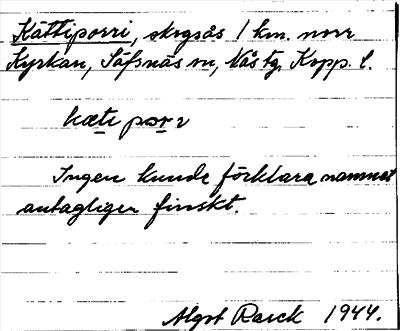 Kättiporri, skogsås 1 km. norr
Kyrkan, Säfsnäs sn, Nås tg, Kopp. l.
kæti pori
Ingen kunde förklara namnet
antagligen finskt.
Algot Rarck 1944.